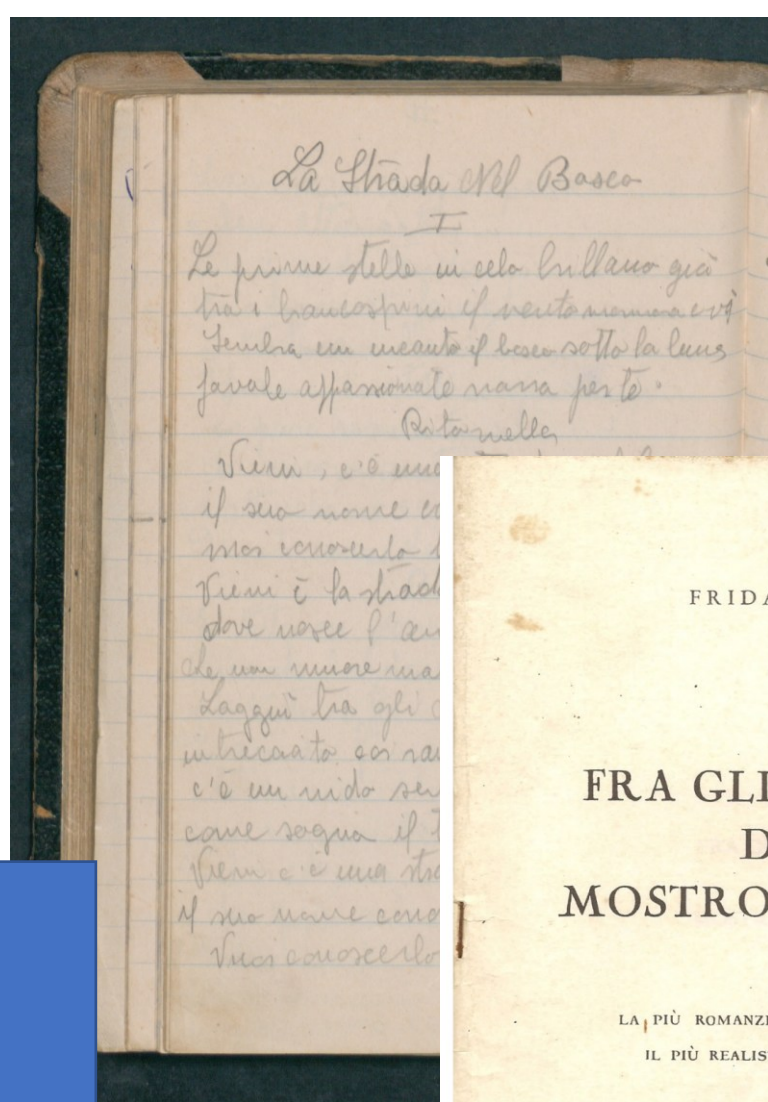 La Strada Nel Bosco
I
Le prime stelle in celo brillano già
tra i biancospini il vento mormora così
Sembra un incanto il bosco sotto la luna
favole appassionate narra per te.
Ritornello
Vieni, c'è una
il suo nome
vuoi conoscerlo
Vieni è la strad
dove nasce l'am
che non muore ma
Laggiù tra gli
intrecciato coi ra
c'è un nido se
come sogna il
Vieni c'è una stra
il suo nome cono
Vuoi conoscerlo
FRIDA
FRA GLI
D
MOSTRO
LA PIÙ ROMANZ
IL PIÙ REALIS